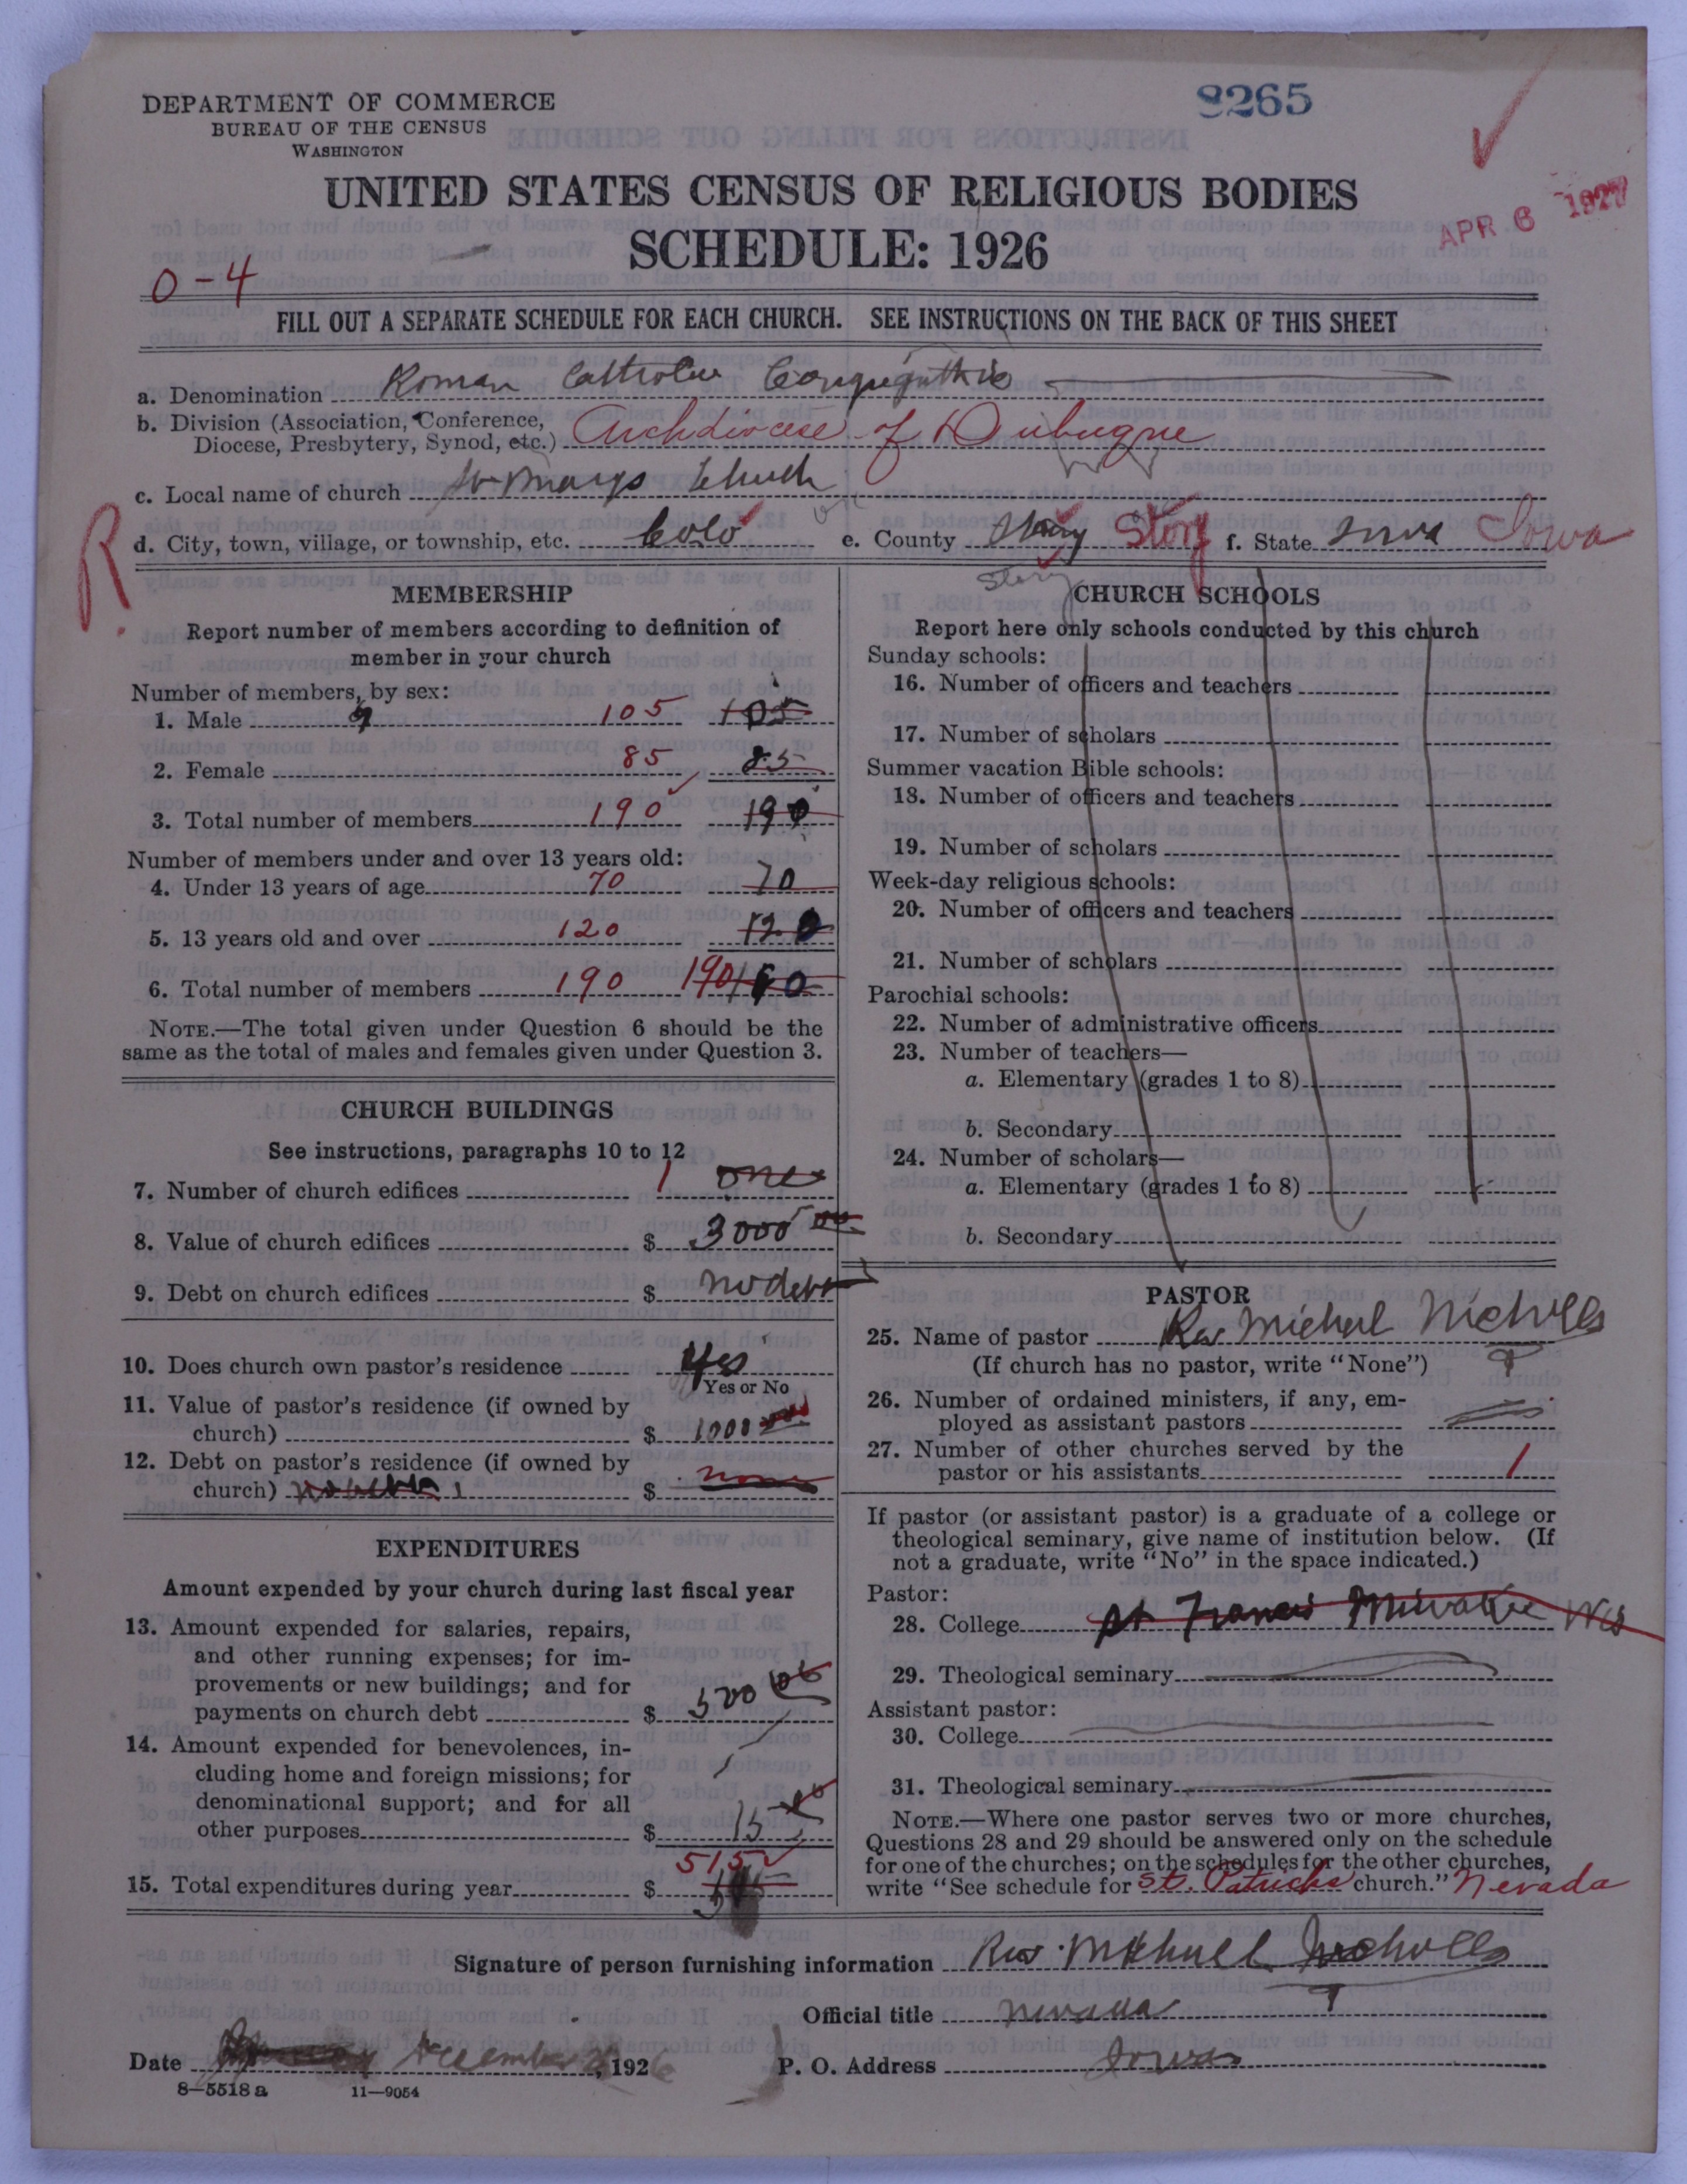 DEPARTMENT OF COMMERCE
BUREAU OF THE CENSUS
WASHINGTON
8265
UNITED STATES CENSUS OF RELIGIOUS BODIES
SCHEDULE: 1926
APR 6 1927
0-4
FILL OUT A SEPARATE SCHEDULE FOR EACH CHURCH. SEE INSTRUCTIONS ON THE BACK OF THIS SHEET
a. Denomination Roman Catholic
b. Division (Association, Conference,
Diocese, Presbytery, Synod, etc.) Archdiocese of Dubuque
c. Local name of church St Marys Church
R.
d. City, town, village, or township, etc. Colo e. County Story Story f. State Iowa Iowa
Story
MEMBERSHIP
Report number of members according to definition of
member in your church
Number of members, by sex:
1. Male 105 105
2. Female 85 85
3. Total number of members 190 190
Number of members under and over 13 years old:
4. Under 13 years of age 70 70
5. 13 years old and over 120 120
6. Total number of members 190 190
NOTE.—The total given under Question 6 should be the
same as the total of males and females given under Question 3.
CHURCH BUILDINGS
See instructions, paragraphs 10 to 12
7. Number of church edifices 1 one
8. Value of church edifices $ 3000 00
9. Debt on church edifices $ no debt
10. Does church own pastor's residence Yes
Yes or No
11. Value of pastor's residence (if owned by
church) $ 1000
12. Debt on pastor's residence (if owned by
church) $ none
EXPENDITURES
Amount expended by your church during last fiscal year
13. Amount expended for salaries, repairs,
and other running expenses; for im-
provements or new buildings; and for
payments on church debt $ 500 00
14. Amount expended for benevolences, in-
cluding home and foreign missions; for
denominational support; and for all
other purposes $ 15
515
15. Total expenditures during year $
CHURCH SCHOOLS
Report here only schools conducted by this church
Sunday schools:
16. Number of officers and teachers
17. Number of scholars
Summer vacation Bible schools:
18. Number of officers and teachers
19. Number of scholars
Week-day religious schools:
20. Number of officers and teachers
21. Number of scholars
Parochial schools:
22. Number of administrative officers
23. Number of teachers—
a. Elementary (grades 1 to 8)
b. Secondary
24. Number of scholars—
a. Elementary (grades 1 to 8)
b. Secondary
PASTOR
25. Name of pastor Rev Michael Nicholls
(If church has no pastor, write "None")
26. Number of ordained ministers, if any, em-
ployed as assistant pastors
27. Number of other churches served by the
pastor or his assistants 1
If pastor (or assistant pastor) is a graduate of a college or
theological seminary, give name of institution below. (If
not a graduate, write "No" in the space indicated.)
Pastor:
28. College St Francis Milwaukee Wis
29. Theological seminary
Assistant pastor:
30. College
31. Theological seminary
NOTE.—Where one pastor serves two or more churches,
Questions 28 and 29 should be answered only on the schedule
for one of the churches; on the schedules for the other churches,
write "See schedule for St. Patricks church." Nevada
Signature of person furnishing information Rev. Michael Nicholls
Official title Nevada
Date December 2, 1926 P. O. Address Iowa
8-5518 a 11-9054